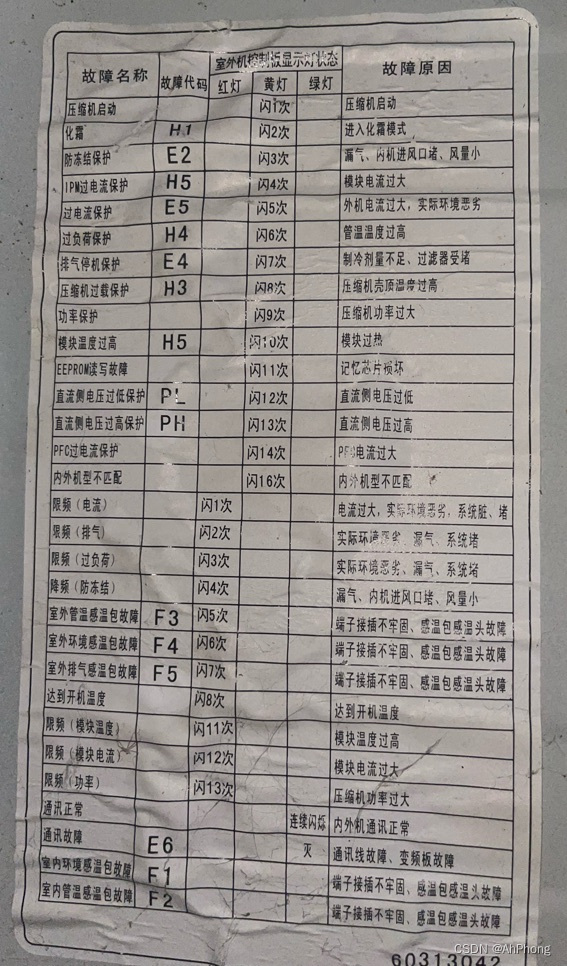 故障名称 故障代码 室外机控制板显示灯状态 故障原因
红灯 黄灯 绿灯
压缩机启动 闪1次 压缩机启动
化霜 H1 闪2次 进入化霜模式
防冻结保护 E2 闪3次 漏气、内机进风口堵、风量小
IPM过电流保护 H5 闪4次 模块电流过大
过电流保护 E5 闪5次 外机电流过大，实际环境恶劣
过负荷保护 H4 闪6次 管温温度过高
排气停机保护 E4 闪7次 制冷剂量不足、过滤器受堵
压缩机过载保护 H3 闪8次 压缩机壳顶温度过高
功率保护 闪9次 压缩机功率过大
模块温度过高 H5 闪10次 模块过热
EEPROM读写故障 闪11次 记忆芯片损坏
直流侧电压过低保护 PL 闪12次 直流侧电压过低
直流侧电压过高保护 PH 闪13次 直流侧电压过高
PFC过电流保护 闪14次 PFC电流过大
内外机型不匹配 闪16次 内外机型不匹配
限频（电流） 闪1次 电流过大，实际环境恶劣，系统脏、堵
限频（排气） 闪2次 实际环境恶劣、漏气、系统堵
限频（过负荷） 闪3次 实际环境恶劣、漏气、系统堵
降频（防冻结） 闪4次 漏气、内机进风口堵、风量小
室外管温感温包故障 F3 闪5次 端子接插不牢固、感温包感温头故障
室外环境感温包故障 F4 闪6次 端子接插不牢固、感温包感温头故障
室外排气感温包故障 F5 闪7次 端子接插不牢固、感温包感温头故障
达到开机温度 闪8次 达到开机温度
限频（模块温度） 闪11次 模块温度过高
限频（模块电流） 闪12次 模块电流过大
限频（功率） 闪13次 压缩机功率过大
通讯正常 连续闪烁 内外机通讯正常
通讯故障 E6 灭 通讯线故障、变频板故障
室内环境感温包故障 F1 端子接插不牢固、感温包感温头故障
室内管温感温包故障 F2 端子接插不牢固、感温包感温头故障
60313042
CSDN @AhPhong